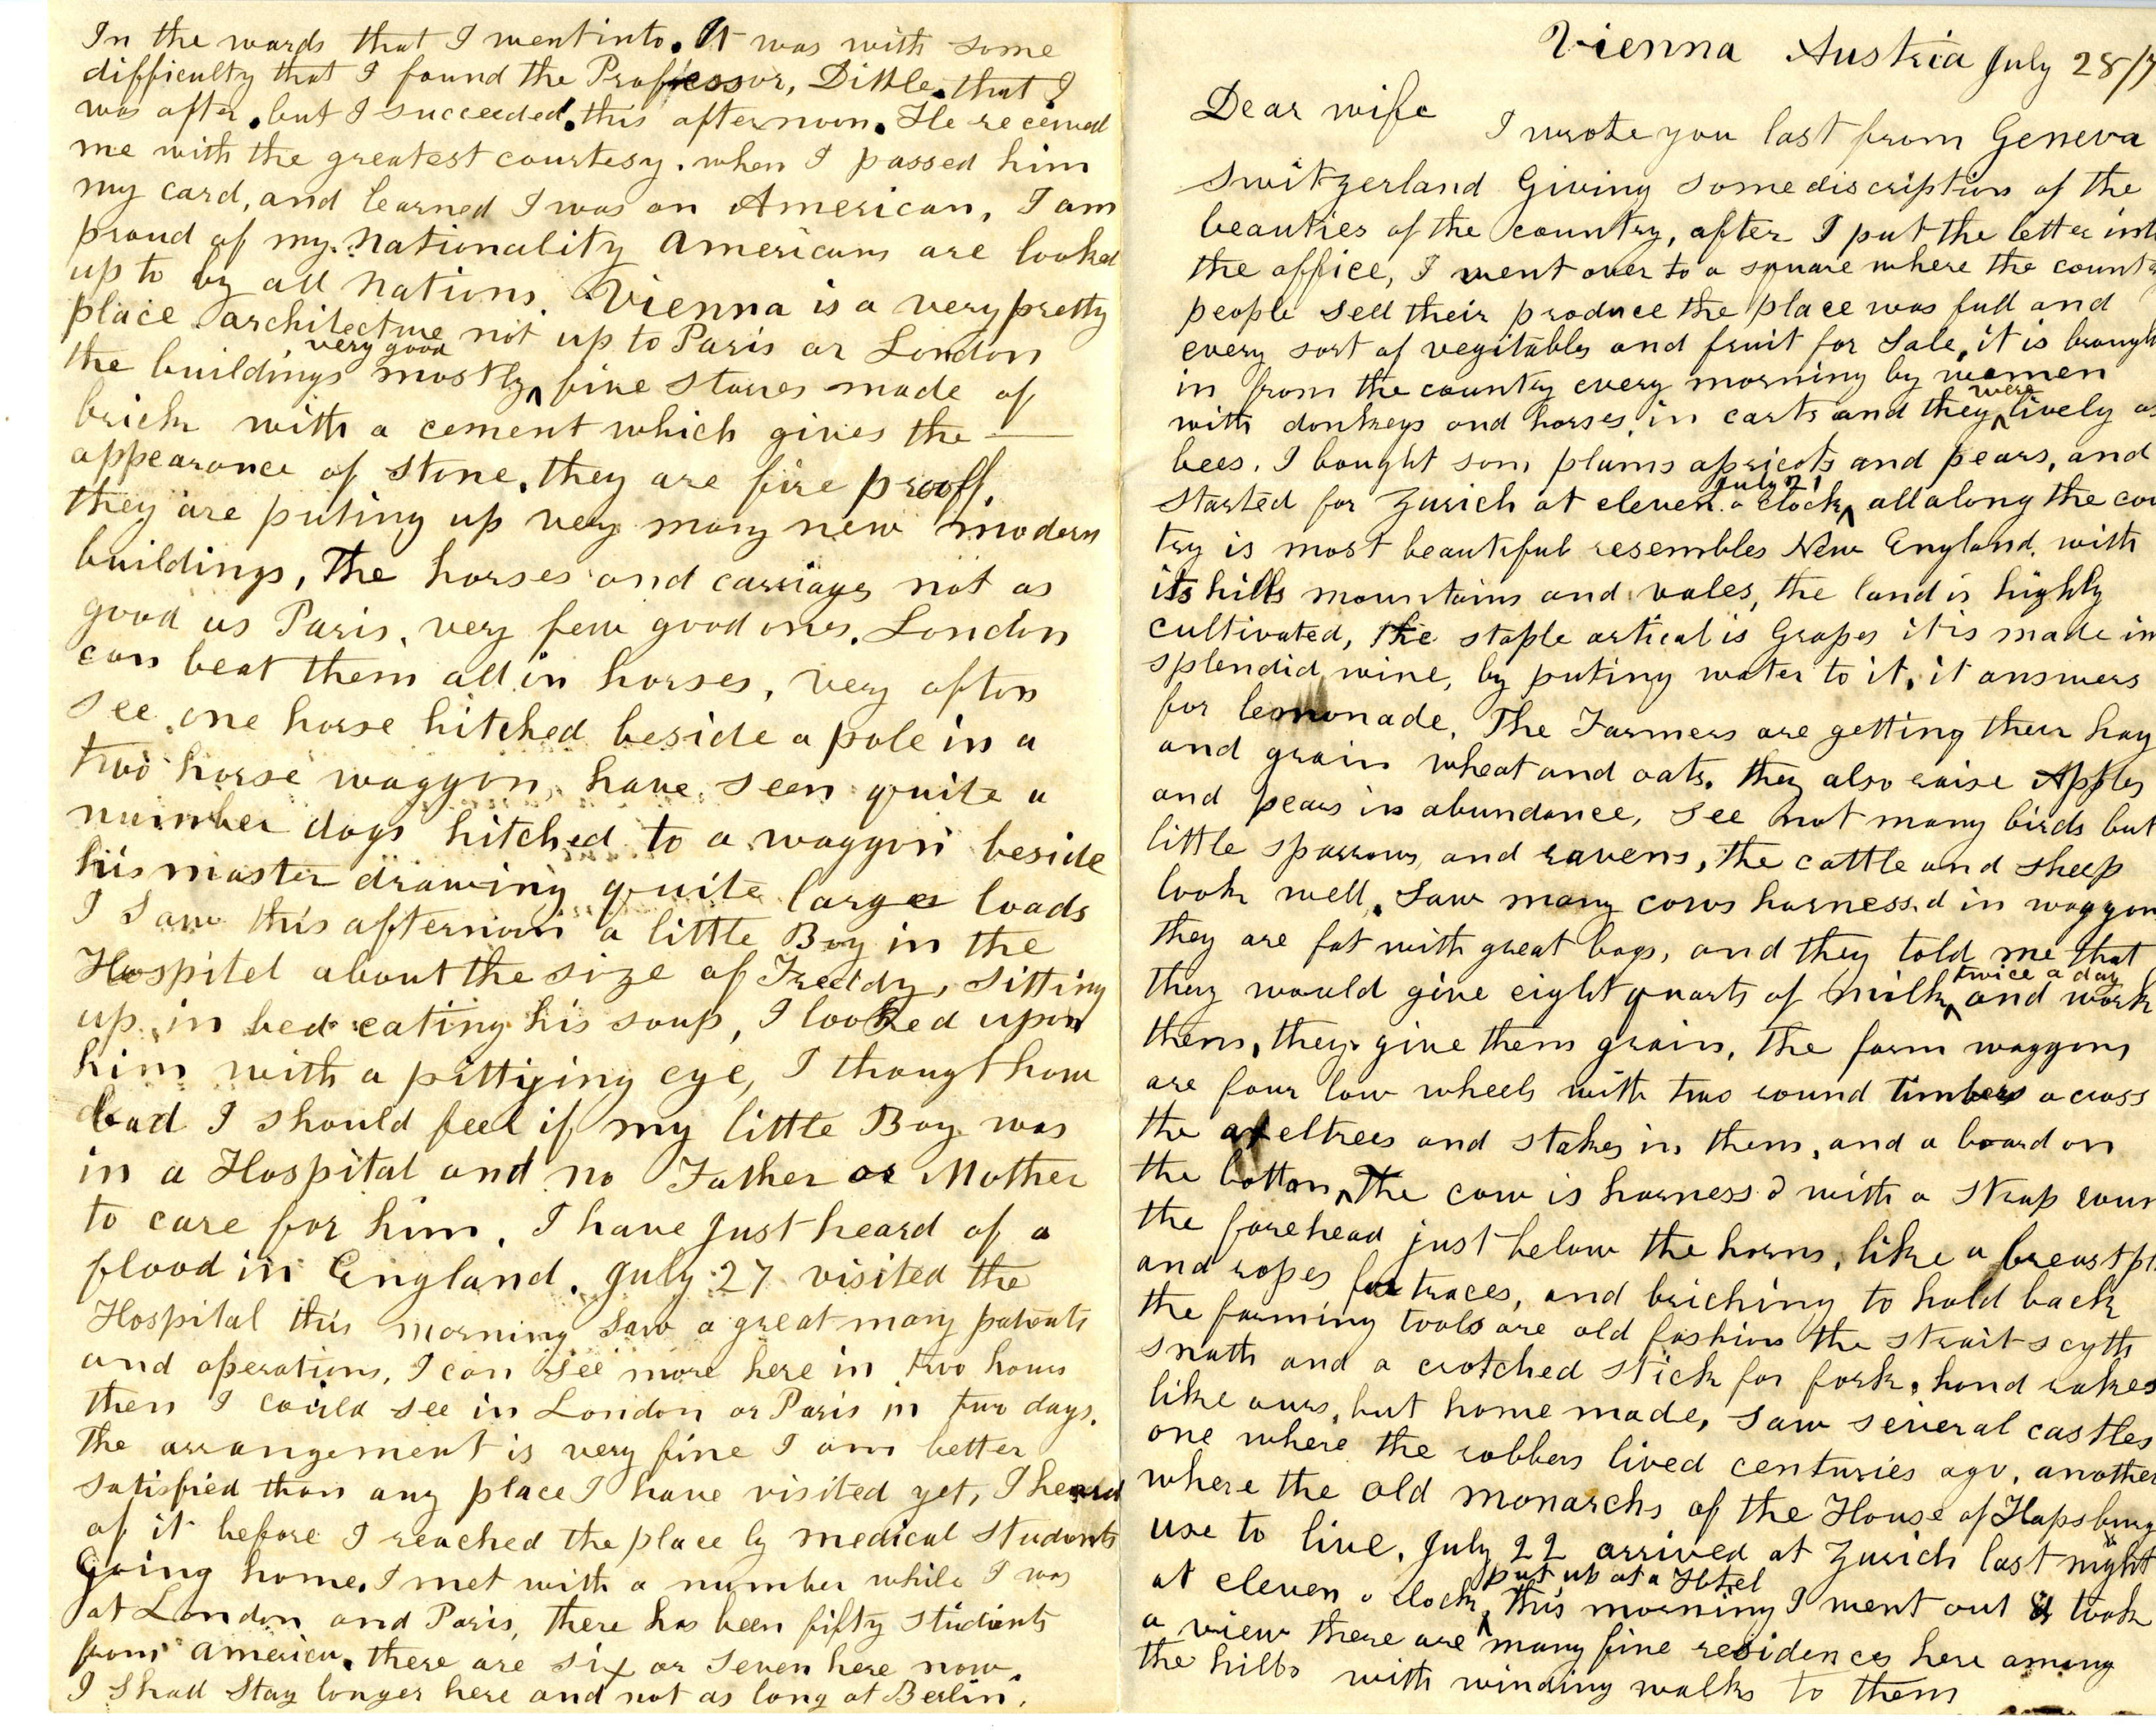 Vienna Austria July 28/7
Dear wife
I wrote you last from Geneva
Switzerland Giving some discription of the
beauties of the country, after I put the letter int
the office, I went over to a square where the countr
people sell their produce the place was full and
every sort of vegitables and fruit for Sale, it is brough
in from the country every morning by women
with donkeys and horses in carts and they were lively as
bees. I bought som plums apricots and pears, and
started for Zurich at eleven o clock July 21 all along the cou
try is most beautiful resembles New England, with
its hills mountains and vales, the land is highly
cultivated, the staple artical is Grapes it is made in
splendid wine, by puting water to it, it answers
for lemonade, The Farmers are getting their hay
and grain wheat and oats. they also raise Apples
and pears in abundance, see not many birds but
little sparrows and ravens, the cattle and sheep
look well. Saw many cows harness.d in waggon
they are fat with great bags, and they told me that
they would give eight quarts of milk twice a day and work
them, they give them grain, the farm waggons
are four low wheels with two round timbers across
the axeltrees and stakes in them, and a board on
the bottom, The cow is harness d with a strap roun
the forehead just below the horns, like a breast pl
and ropes for traces, and briching to hold back
the farming tools are old fashion the strait scyth
snath and a crotched stick for fork, hand rakes
like ours, but home made, saw several castles
one where the robbers lived centuries ago, another
where the old monarchs of the House of Hapsburg
use to live, July 22 arrived at Zurich last night
at eleven o clock, put up at a Hotel this morning I went out & took
a view there are many fine residences here among
the hills with winding walks to them
In the wards that I went into. It was with some
difficulty that I found the Professor, Dittle. that I
was after. but I succeeded. this afternoon. He received
me with the greatest courtesy. when I passed him
my card, and learned I was an American, I am
proud of my Nationality Americans are looked
up to by all Nations. Vienna is a very pretty
place architecture not up to Paris or London
the buildings mostly very good five stories made of
brick with a cement which gives the
appearance of stone, they are fire prooff.
they are puting up very many new modern
buildings, The horses and carriages not as
good as Paris, very few good ones. London
can beat them all in horses, very often
see one horse hitched beside a pole in a
two horse waggon, have seen quite a
number dogs hitched to a waggon beside
his master drawing quite large loads
I saw this afternoon a little Boy in the
Hospitel about the size of Freddy, sitting
up in bed eating his soup, I looked upon
him with a pittying eye, I thought how
bad I should feel if my little Boy was
in a Hospital and no Father or Mother
to care for him. I have just heard of a
flood in England. July 27 visited the
Hospital this morning saw a great many patients
and operations, I can see more here in two hours
then I could see in London or Paris in two days.
the arrangement is very fine I am better
satisfied than any place I have visited yet, I heard
of it before I reached the place by medical students
going home. I met with a number while I was
at London and Paris, there has been fifty students
from America. there are six or seven here now.
I shall stay longer here and not as long at Berlin.